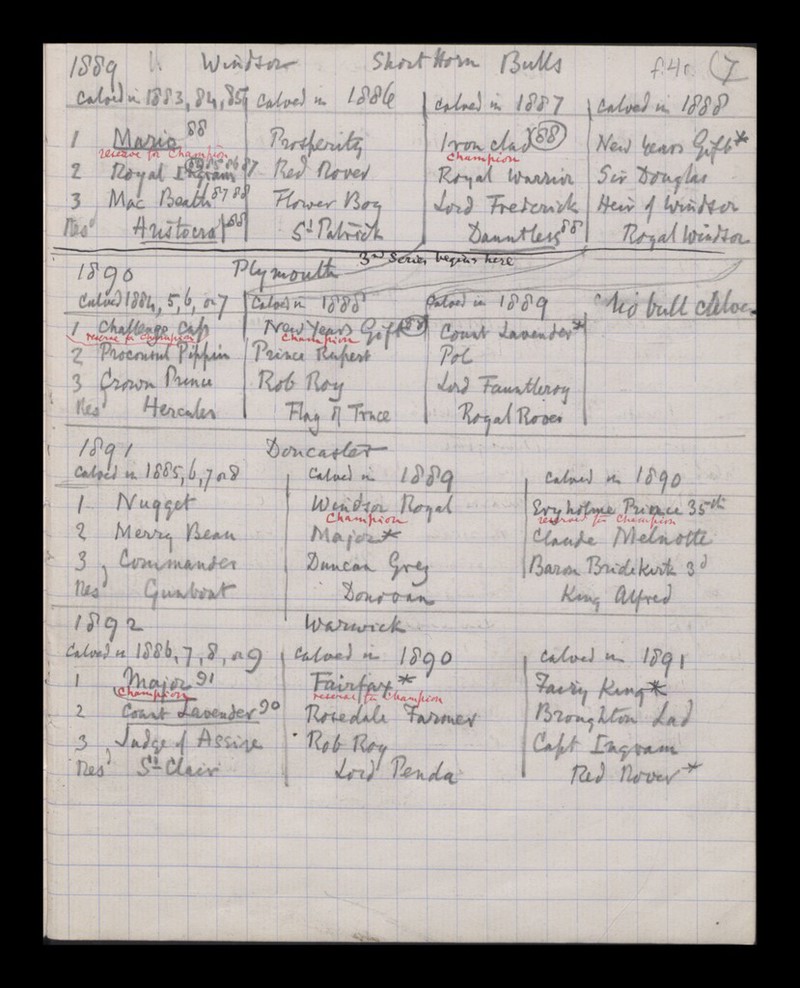 1889 Windsor Short Horn Bulls f.4r (7
Calved in 1883, 84, 85 Calved in 1886 Calved in 1887 Calved in 1888
1 Mario 88 Prosperity Iron clad 88 New Years Gift*
reserve for Champion Champion
2 Royal Ingram 86 87 Red Rover Royal Warrior Sir Douglas
3 Mac Beath 87 88 Flower Boy Lord Frederick Heir of Windsor
Resd Aristocrat 88 St Patrick Dauntless 88 Royal Windsor
3rd Series begins here
1890 Plymouth
Calved 1884, 5, 6, or 7 Calved in 1888 Calved in 1889 No bull calve
1 Challenge Cup New Years Gift 88 Count Lavender*
reserve for Champion Champion
2 Proconsul Pippin Prince Rupert Pol
3 Crown Prince Rob Roy Lord Fauntleroy
Resd Hercules Flag of Truce Royal Rover
1891 Doncaster
Calved in 1885, 6, 7 or 8 Calved in 1889 Calved in 1890
1 Nugget Windsor Royal Eryholme Prince 35th
Champion reserve for Champion
2 Merry Beau Major* Claude Melnotte
3 Commander Duncan Grey Baron Bridekirk 3d
Resd Gunboat Donovan King Alfred
1892 Warwick
Calved in 1886, 7, 8, or 9 Calved in 1890 Calved in 1891
1 Major 91 Fairfax* Fairy King*
Champion reserve for Champion
2 Count Lavender 90 Rosedale Farmer Broughton Lad
3 Judge of Assize Rob Roy Capt Ingram
Resd St Clair Lord Penda Red Rover*